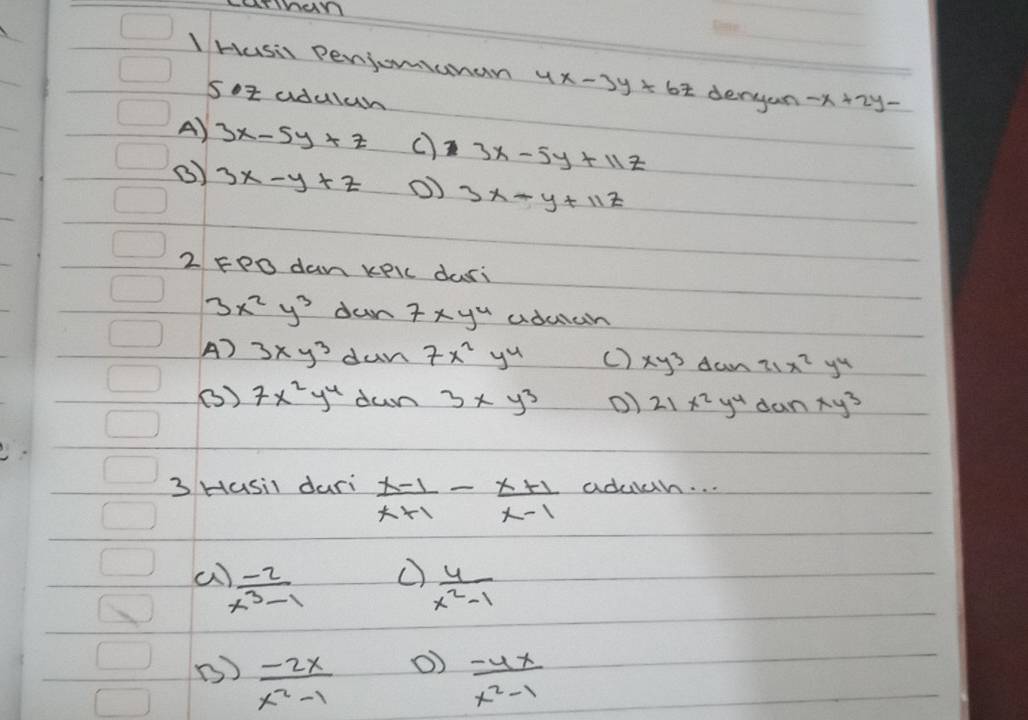 Latihan
1 Hasil Penjumlahan 4x-3y+6z dengan -x+2y-
5z adalah
A) 3x-5y+z C) 3x-5y+11z
B) 3x-y+z D) 3x-y+11z
2 FPB dan KPK dari
3x² y³ dan 7xy⁴ adalah
A) 3xy³ dan 7x² y⁴ C) xy³ dan 21x² y⁴
B) 7x²y⁴ dan 3x y³ D) 21 x²y⁴ dan xy³
3 Hasil dari (x-1)/(x+1) - (x+1)/(x-1) adalah...
a) -2/(x³-1) C) 4/(x²-1)
B) -2x/(x²-1) D) -4x/(x²-1)